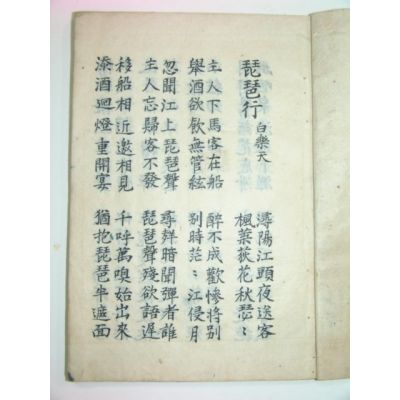 琵琶行 白樂天
潯陽江頭夜送客
楓葉荻花秋瑟〻
主人下馬客在船 醉不成歡慘將別
舉酒欲飲無管絃 別時茫〻江侵月
忽聞江上琵琶聲 尋聲暗聞彈者誰
主人忘歸客不發 琵琶聲殘欲語遲
移船相近邀相見 千呼萬喚始出來
添酒迴燈重開宴 猶抱琵琶半遮面